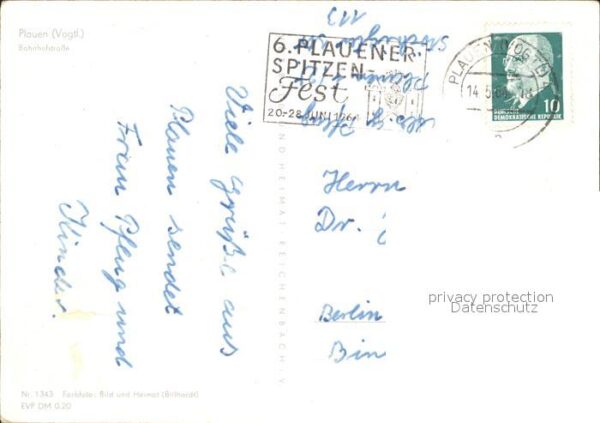 Plauen (Vogtl.)
Bahnhofstraße
6. PLAUENER
SPITZEN-
Fest
20.-28. JUNI 1964
PLAUEN (VOGTL)
14.5.64
10
DEUTSCHE
DEMOKRATISCHE REPUBLIK
Viele Grüße aus
Plauen sendet
Frau Pflug und
Kinder.
Plauen
Herrn
Dr.
Berlin
Bin
UND HEIMAT-REICHENBACH i.V.
privacy protection
Datenschutz
Nr. 1343 Farbfoto: Bild und Heimat (Birlhardt)
EVP DM 0.20